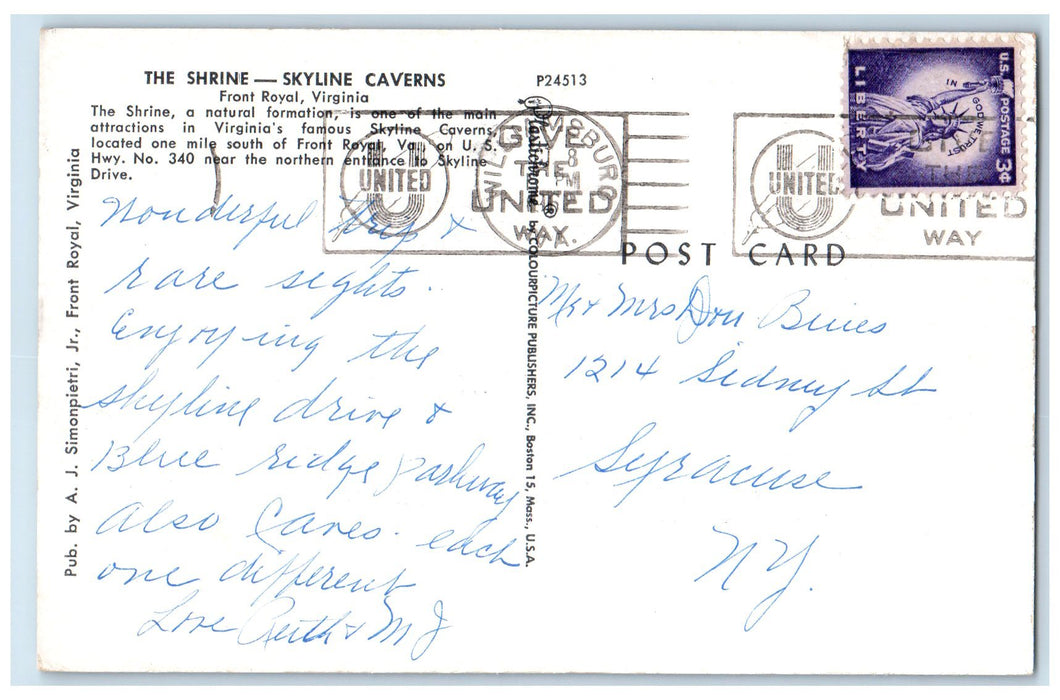 THE SHRINE — SKYLINE CAVERNS
Front Royal, Virginia
The Shrine, a natural formation, is one of the main
attractions in Virginia's famous Skyline Caverns,
located one mile south of Front Royal, Va., on U. S.
Hwy. No. 340 near the northern entrance to Skyline
Drive.
Wonderful trip &
rare sights.
Enjoying the
skyline drive &
Blue ridge parkway
also Caves. each
one different
Love Ruth & MJ
Pub. by A. J. Simonpietri, Jr., Front Royal, Virginia
P24513
Plastichrome ® by COLOURPICTURE PUBLISHERS, INC., Boston 15, Mass., U.S.A.
UNITED
GIVE
THE
UNITED
WAY
WILLIAMSBURG
8
PM
VA.
UNITED
GIVE
THE
UNITED
WAY
U.S. POSTAGE 3¢
LIBERTY
IN GOD WE TRUST
POST CARD
Mr & Mrs Don
1214 Sidney St
Syracuse
NY.